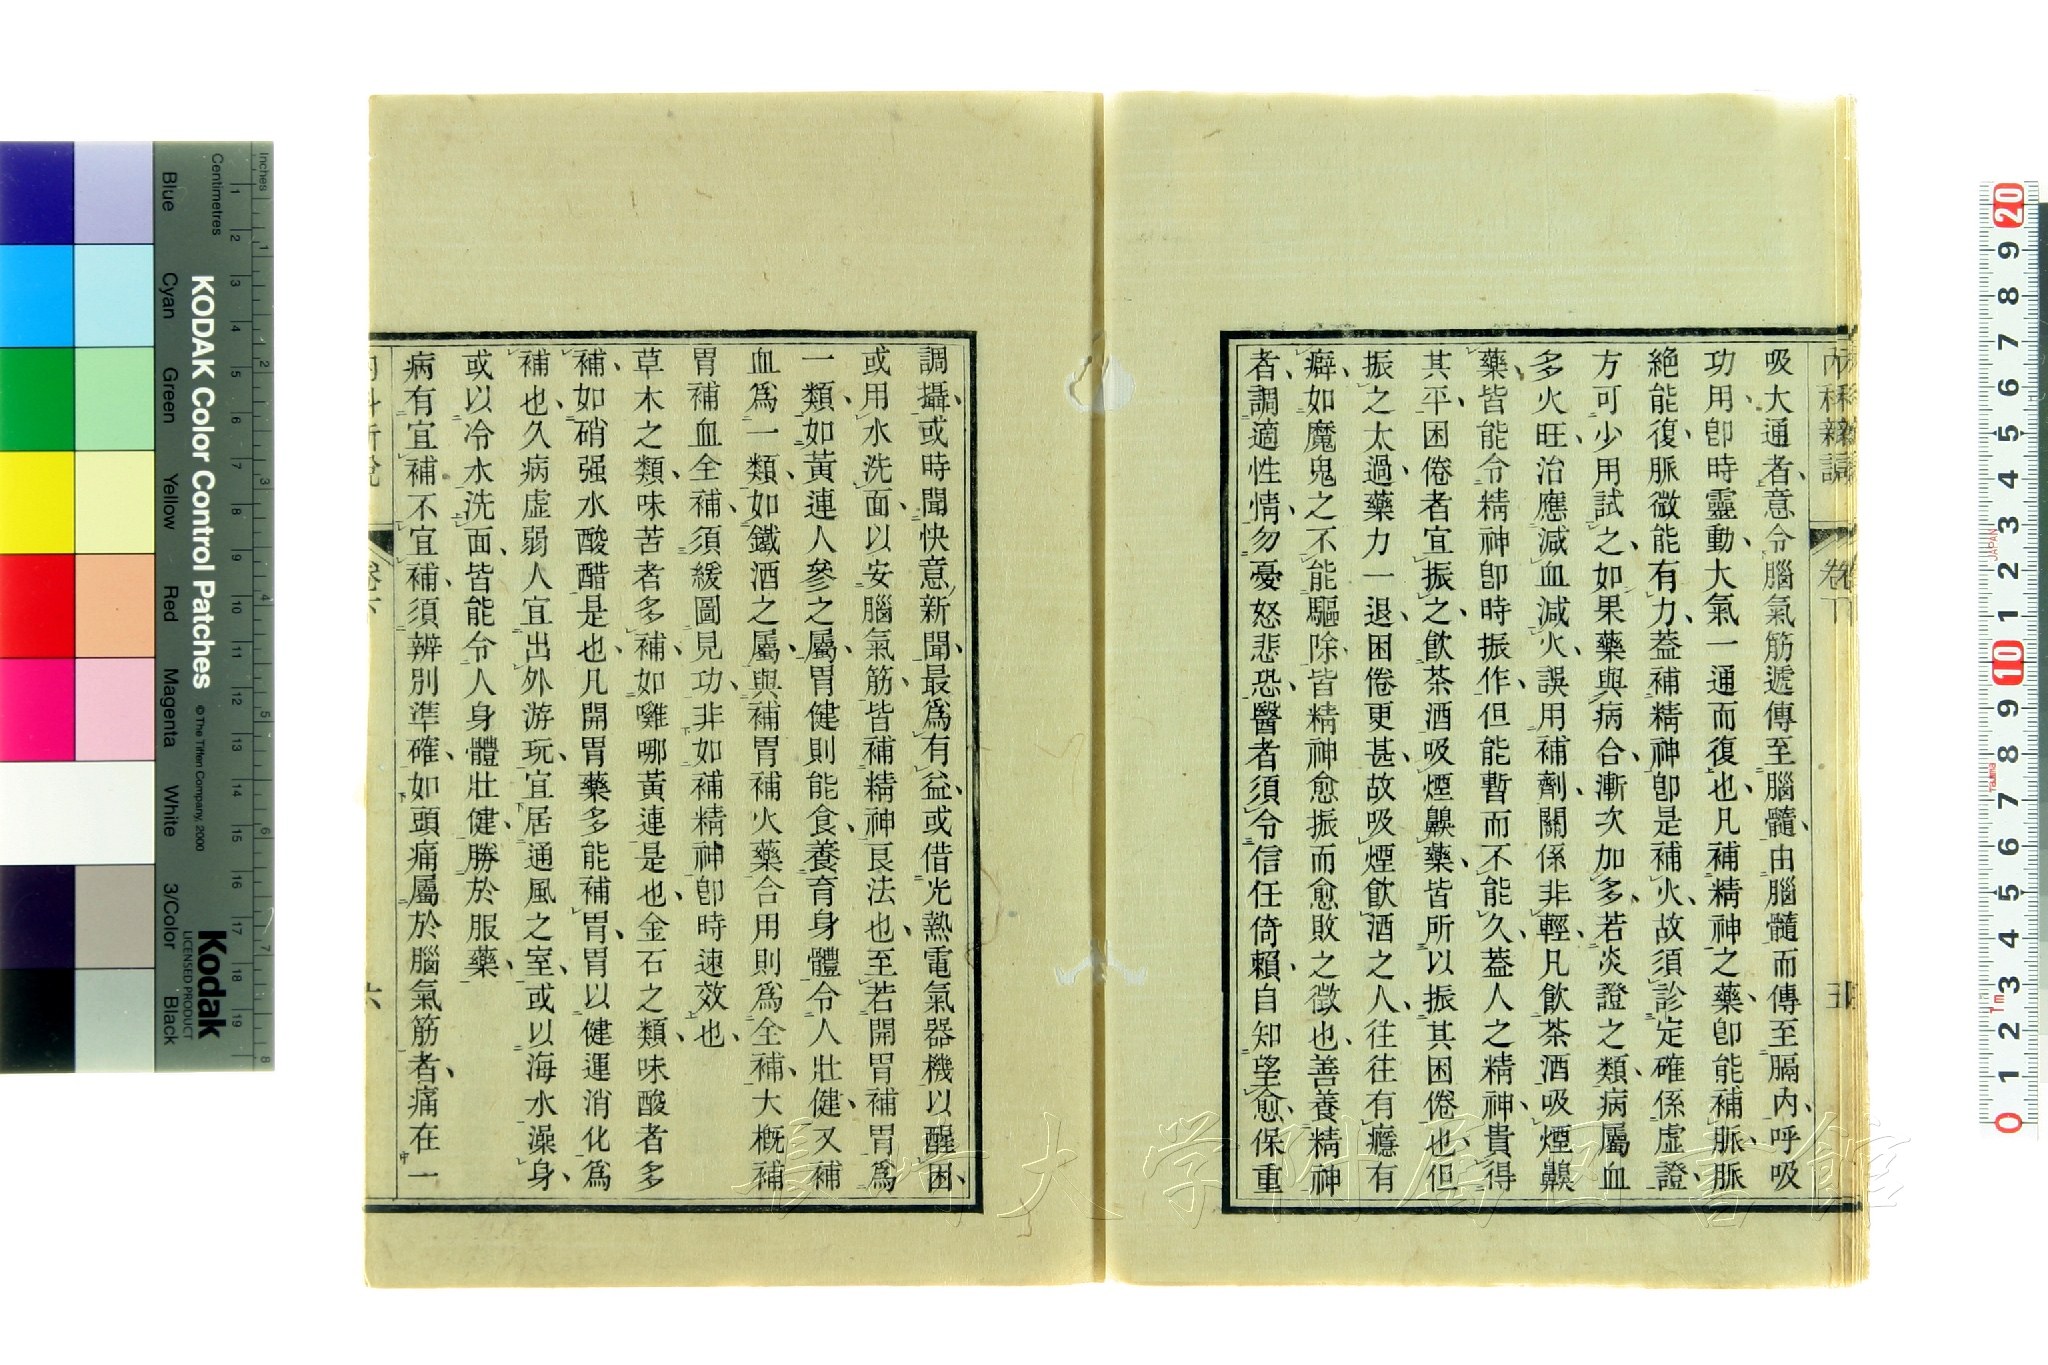 吸大通者、意令腦氣筋遞傳至腦髓、由腦髓而傳至膈內、呼吸
功用、卽時靈動、大氣一通而復也、凡補精神之藥、卽能補脈、脈
絶能復、脈微能有力、葢補精神卽是補火、故須診定確係虛證、
方可少用試之、如果藥與病合、漸次加多、若炎證之類、病屬血
多火旺、治應減血減火、誤用補劑、關係非輕、凡飲茶酒吸煙鼻
藥、皆能令精神卽時振作、但能暫而不能久、葢人之精神、貴得
其平、困倦者宜振之、飲茶酒吸煙鼻藥、皆所以振其困倦也、但
振之太過、藥力一退、困倦更甚、故吸煙飲酒之人、往往有癮有
癖、如魔鬼之不能驅除、皆精神愈振而愈敗之徵也、善養精神
者、調適性情、勿憂怒悲恐、醫者須令信任倚賴、自知望愈、保重
卷下
調攝、或時聞快意新聞、最爲有益、或借光熱電氣器機以醒困、
或用水洗面、以安腦氣筋、皆補精神良法也、至若開胃補胃爲
一類、如黃連人參之屬、胃健則能食、養育身體、令人壯健、又補
血爲一類、如鐵酒之屬、與補胃補火藥合用則爲全補、大槪補
胃補血全補、須緩圖見功、非如補精神卽時速效也、
草木之類、味苦者多補、如囄哪黃連是也、金石之類、味酸者多
補、如硝强水酸醋是也、凡開胃藥多能補胃、胃以健運消化爲
補也、久病虛弱人宜出外游玩、宜居通風之室、或以海水澡身、
或以冷水洗面、皆能令人身體壯健、勝於服藥、
病有宜補不宜補、須辨別準確、如頭痛屬於腦氣筋者、痛在一
六
KODAK Color Control Patches
© The Tiffen Company, 2000
Kodak
LICENSED PRODUCT
Inches
Centimetres
Blue
Cyan
Green
Yellow
Red
Magenta
White
3/Color
Black
長崎大学附属図書館